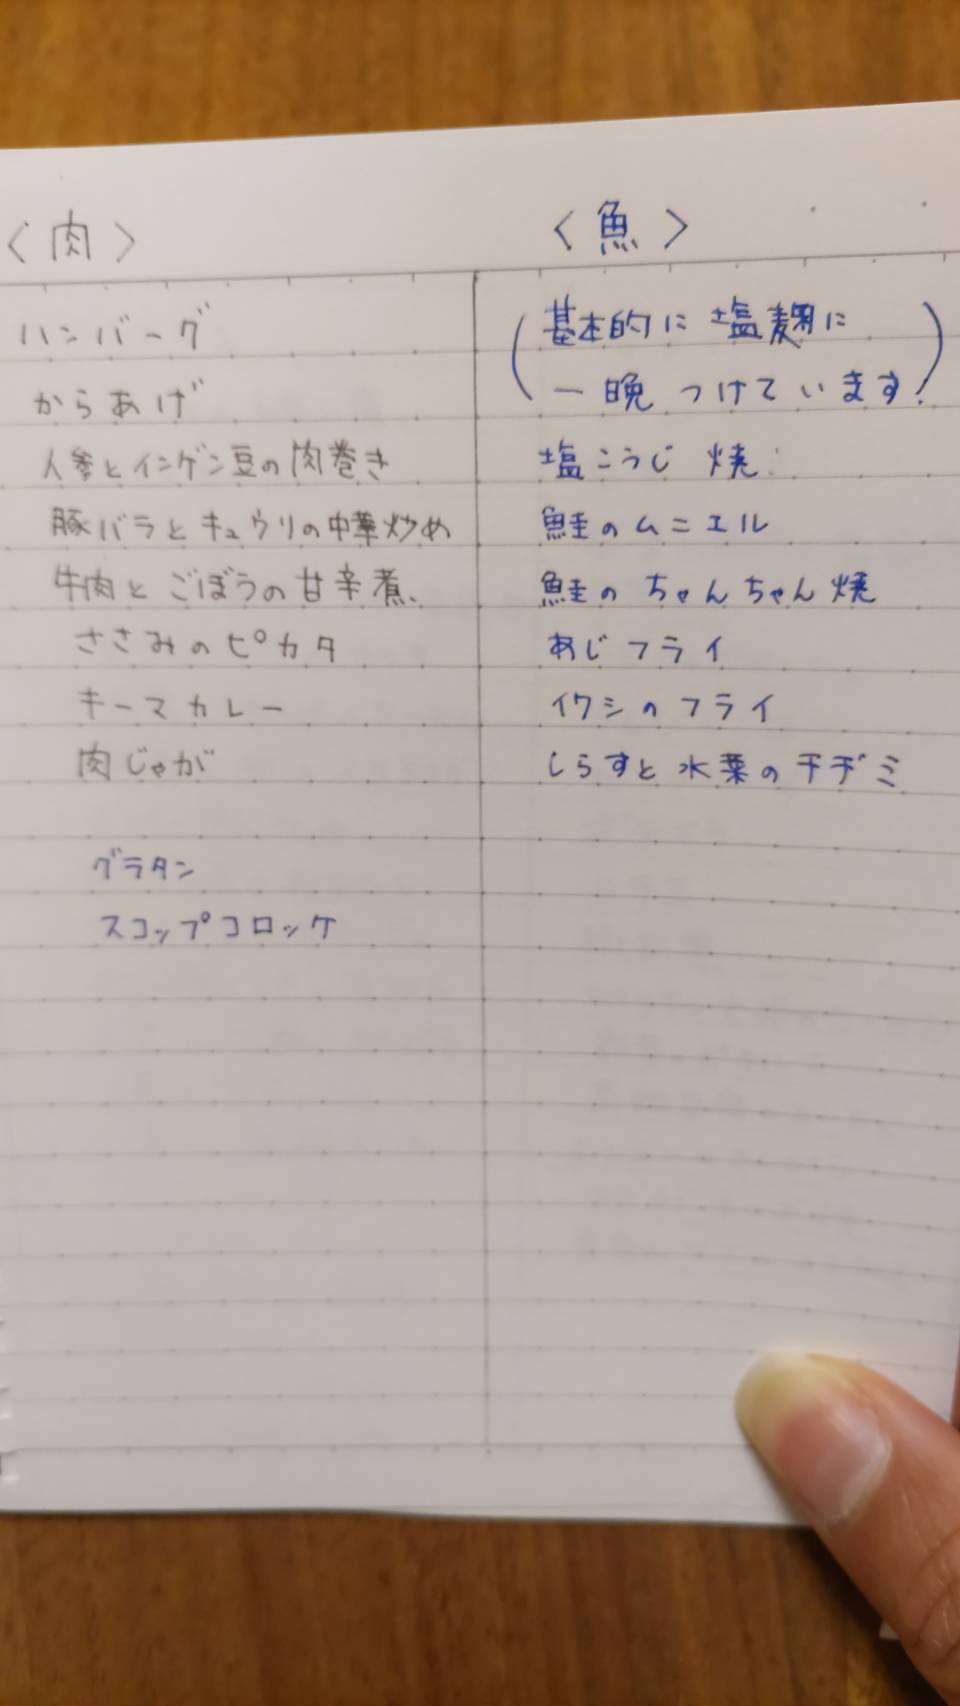 〈肉〉
ハンバーグ
からあげ
人参とインゲン豆の肉巻き
豚バラとキュウリの中華炒め
牛肉とごぼうの甘辛煮、
ささみのピカタ
キーマカレー
肉じゃが
グラタン
スコップコロッケ
〈魚〉
(基本的に塩麹に
一晩つけています!)
塩こうじ焼
鮭のムニエル
鮭のちゃんちゃん焼
あじフライ
イワシのフライ
しらすと水菜のチヂミ